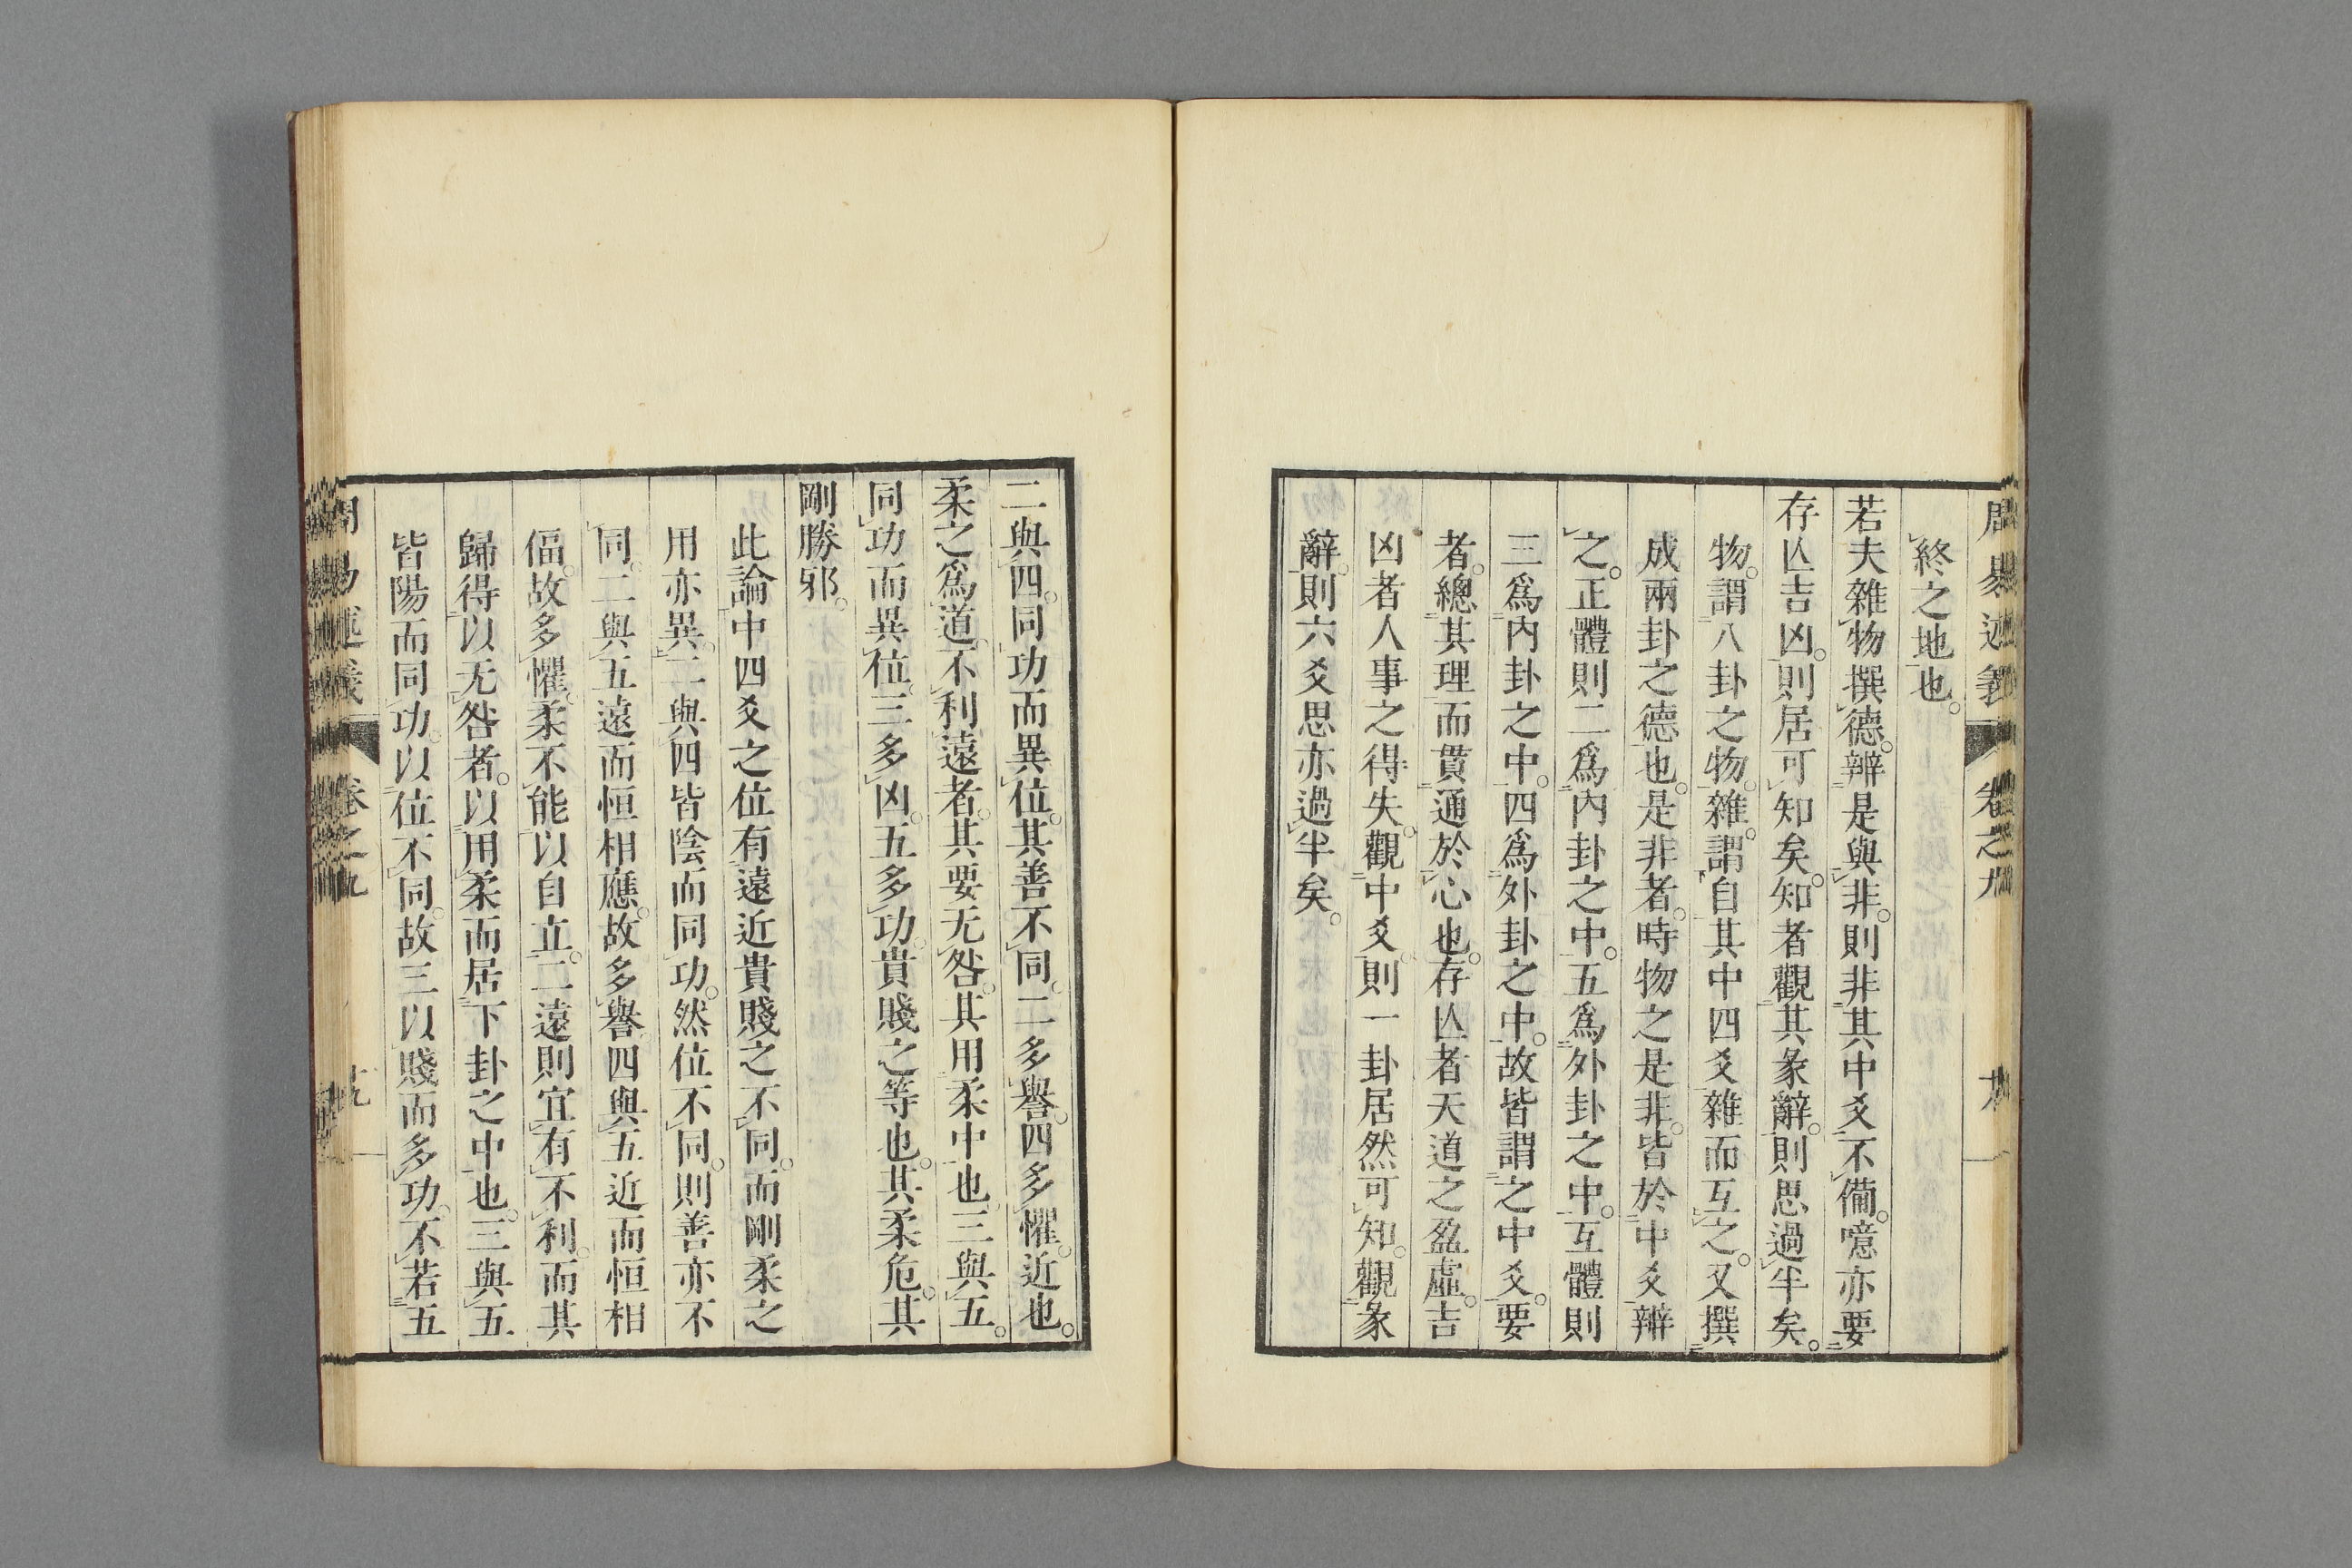 終之地也。
若夫雜物撰德。辯是與非。則非其中爻不備。噫亦要
存亾吉凶。則居可知矣。知者觀其彖辭。則思過半矣。
物。謂八卦之物。雜。謂自其中四爻雜而互之。又撰
成兩卦之德也。是非者。時物之是非。皆於中爻辯
之。正體則二爲內卦之中。五爲外卦之中。互體則
三爲內卦之中。四爲外卦之中。故皆謂之中爻。要
者。總其理而貫通於心也。存亾者天道之盈虛。吉
凶者人事之得失。觀中爻。則一卦居然可知。觀彖
辭。則六爻思亦過半矣。
二與四。同功而異位。其善不同。二多譽。四多懼。近也。
柔之爲道。不利遠者。其要无咎。其用柔中也。三與五。
同功而異位。三多凶。五多功。貴賤之等也。其柔危。其
剛勝邪。
此論中四爻之位有遠近貴賤之不同。而剛柔之
用亦異。二與四皆陰而同功。然位不同。則善亦不
同。二與五遠而恒相應。故多譽。四與五近而恒相
偪。故多懼。柔不能以自立。二遠則宜有不利。而其
歸得以无咎者。以用柔而居下卦之中也。三與五
皆陽而同功。以位不同。故三以賤而多功。不若五
周易述義
卷之九